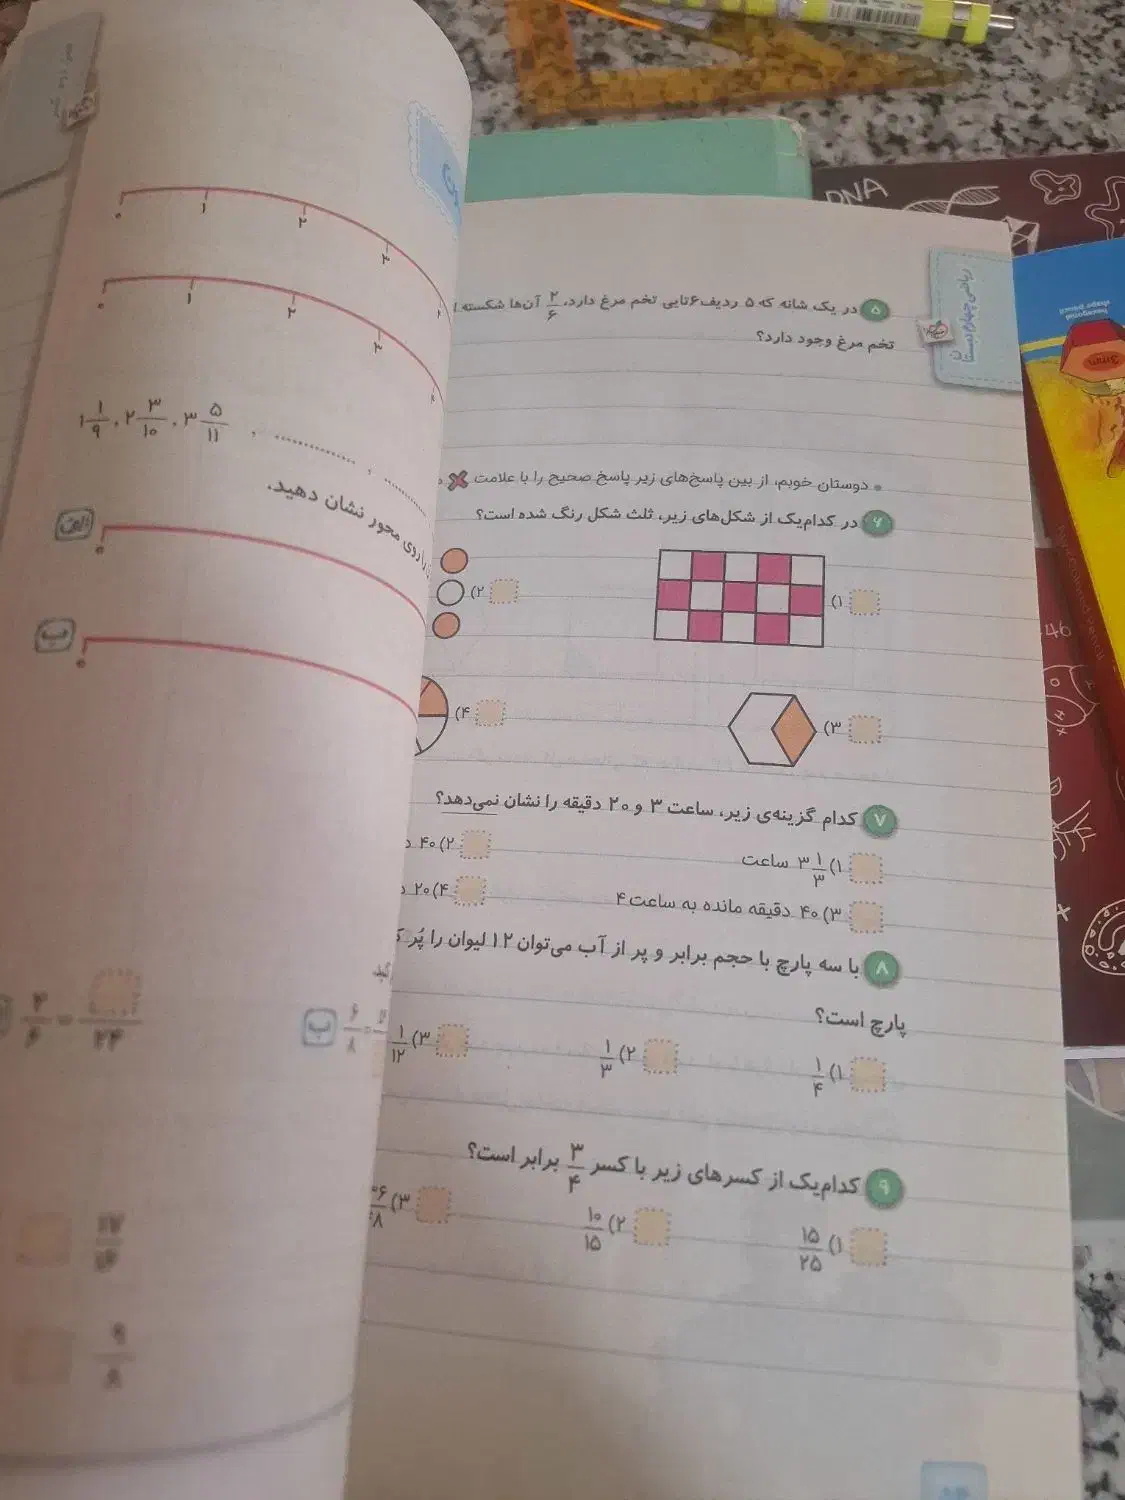 ریاضی چهارم دبستان
۵ در یک شانه که ۵ ردیف ۶تایی تخم مرغ دارد، ۲/۶ آن‌ها شکسته
تخم مرغ وجود دارد؟
• دوستان خوبم، از بین پاسخ‌های زیر پاسخ صحیح را با علامت ×
۶ در کدام‌یک از شکل‌های زیر، ثلث شکل رنگ شده است؟
۱) ۲)
۳) ۴)
۷ کدام گزینه‌ی زیر، ساعت ۳ و ۲۰ دقیقه را نشان نمی‌دهد؟
۱) ۳ ۱/۳ ساعت ۲) ۴۰
۳) ۴۰ دقیقه مانده به ساعت ۴ ۴) ۲۰
۸ با سه پارچ با حجم برابر و پر از آب می‌توان ۱۲ لیوان را پُر
پارچ است؟
۱) ۱/۴ ۲) ۱/۳ ۳) ۱/۱۲
۹ کدام‌یک از کسرهای زیر با کسر ۳/۴ برابر است؟
۱) ۱۵/۲۵ ۲) ۱۰/۱۵ ۳)
۰ ۱ ۲ ۳
۰ ۱ ۲ ۳
۱ ۱/۹ ، ۲ ۳/۱۰ ، ۳ ۵/۱۱ ، ............ ، ............
را روی محور نشان دهید.
الف
۰
ب
۰
ب ۶/۸ =
/۲۴ =
DNA
46
3mm
hexagonal
shape pencil